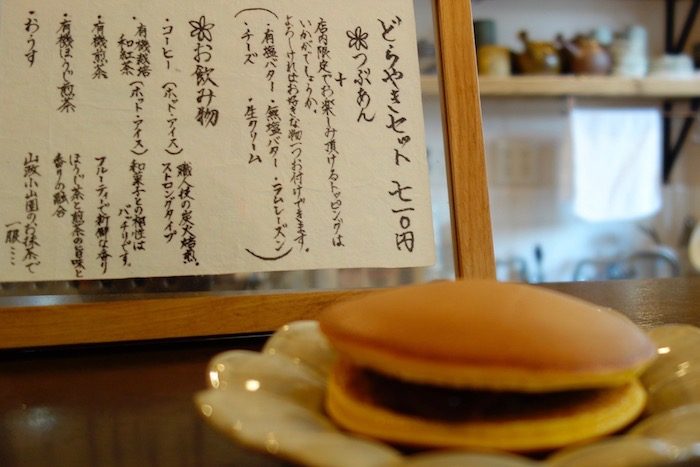 どらやきセット 七一〇円
❀つぶあん
+
店内限定でお楽しみ頂けるトッピングは
いかがでしょうか。
よろしければお好きな物一つお付けできます。
(・有塩バター・無塩バター・ラムレーズン
・チーズ ・生クリーム)
❀お飲み物
・コーヒー(ホット・アイス) 職人技の炭火焙煎。
ストロングタイプ
・有機栽培
和紅茶(ホット・アイス) 和菓子との相性は
バッチリです。
・有機煎茶 フルーティーで新鮮な香り
・有機ほうじ煎茶 ほうじ茶と煎茶の旨味と
香りの融合
・おうす 山政小山園のお抹茶で
一服…